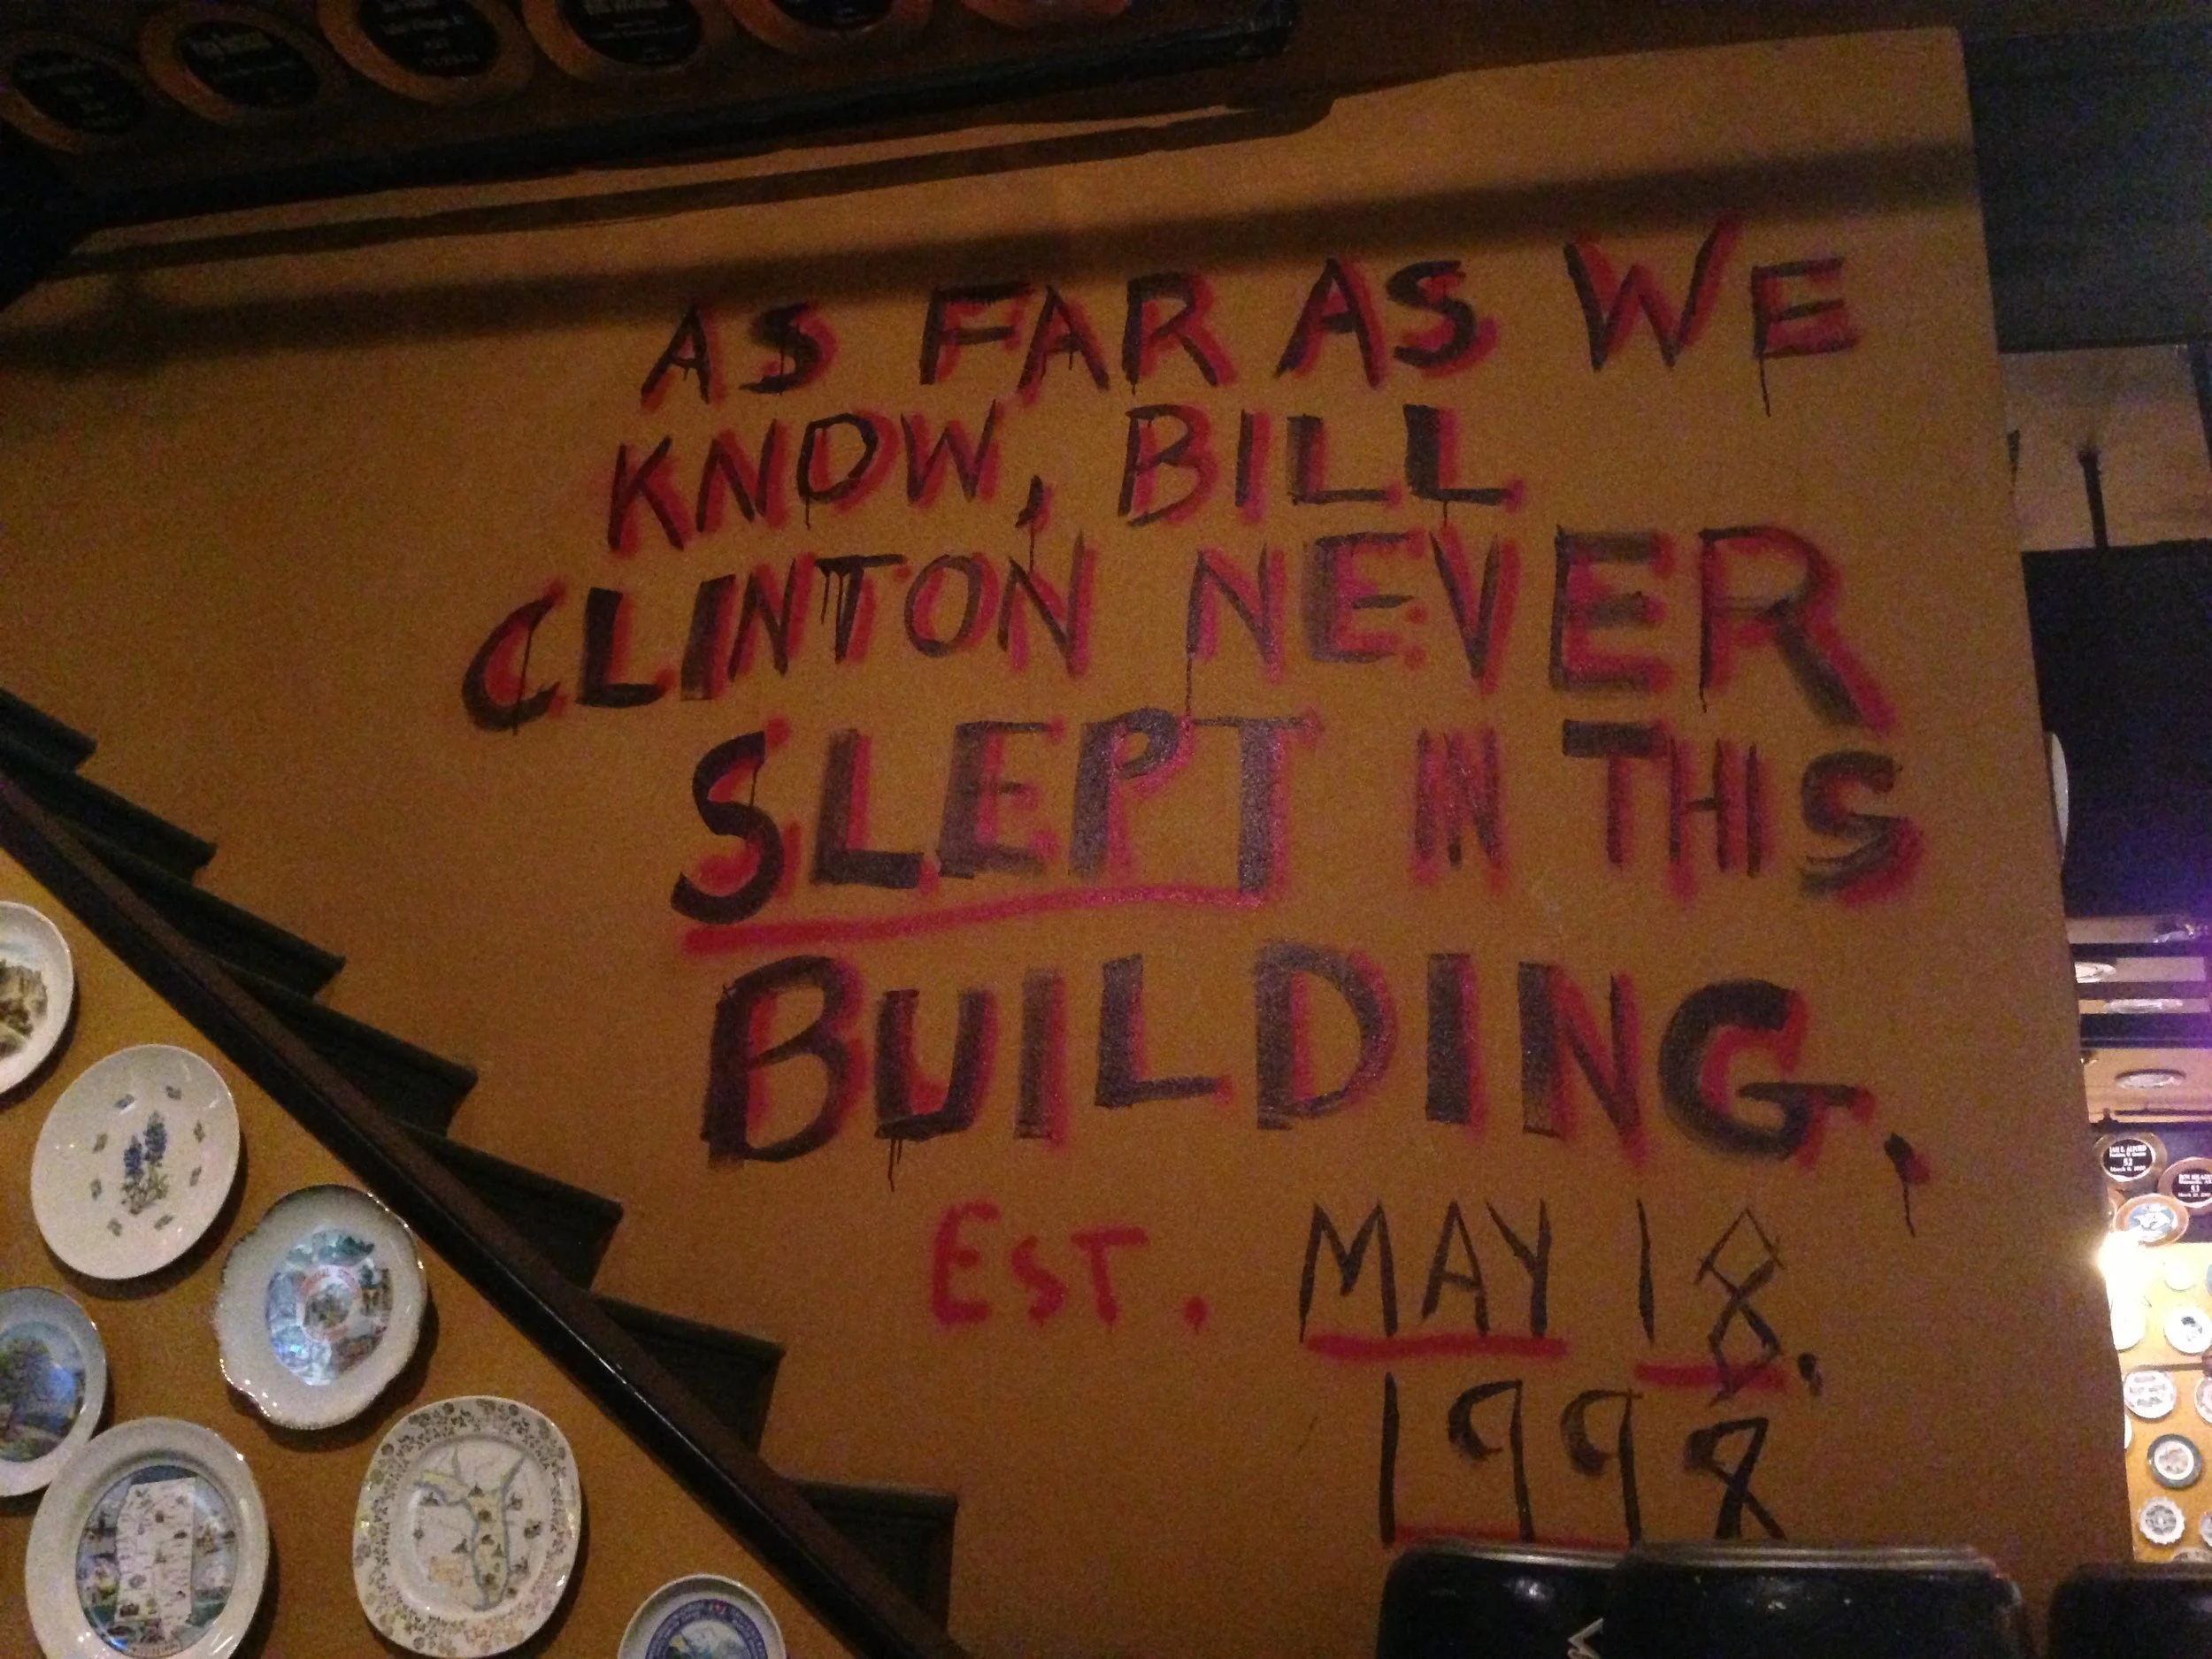 AS FAR AS WE
KNOW, BILL
CLINTON NEVER
SLEPT IN THIS
BUILDING,
EST. MAY 18.
1998